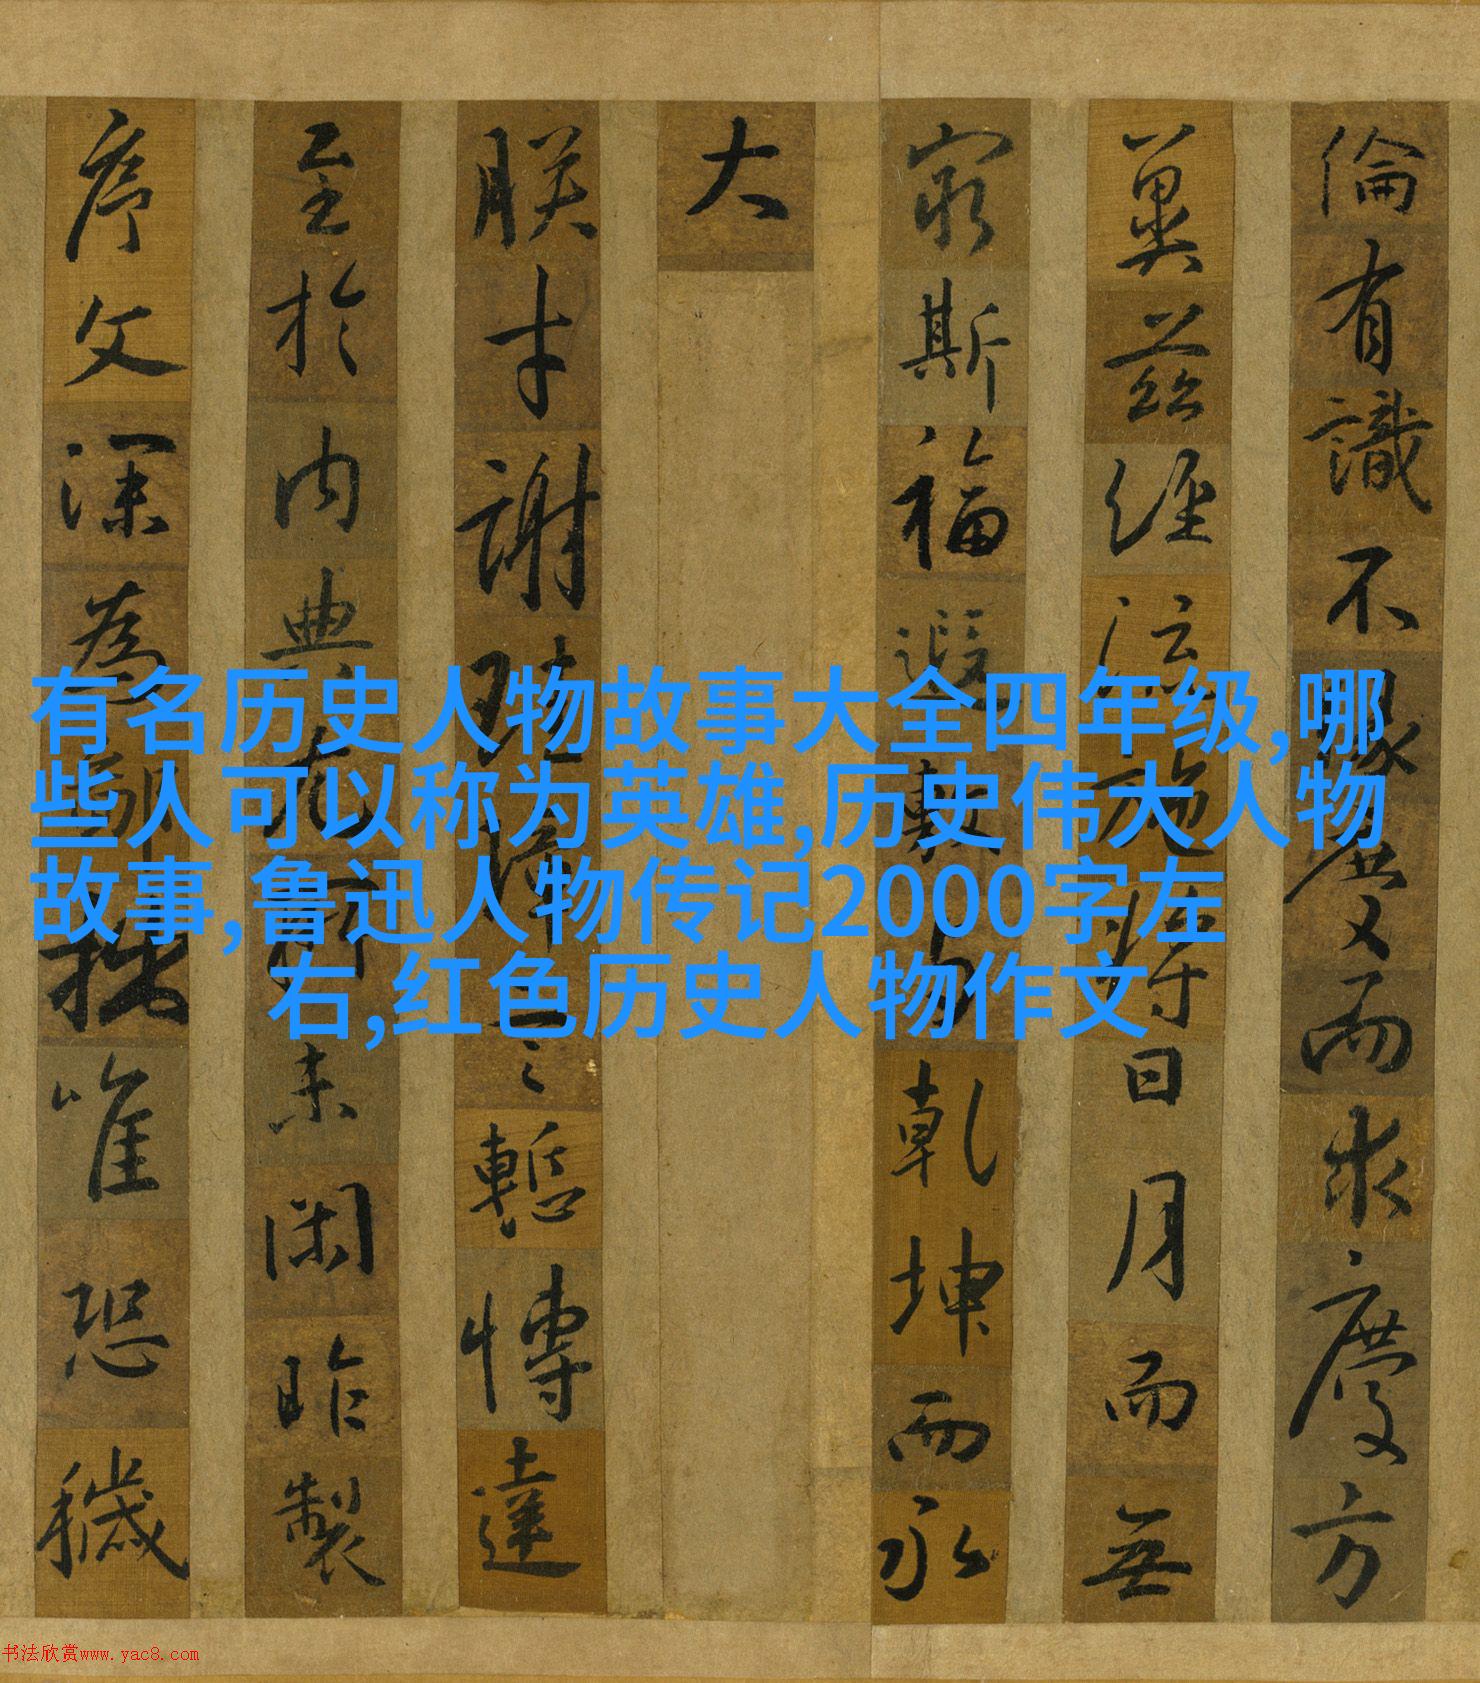 有名历史人物故事大全四年级,哪
些人可以称为英雄,历史伟大人物
故事,鲁迅人物传记2000字左
右,红色历史人物作文
倫有識不緣慶而求慶方
冀茲經流施將日月而無
窮斯福遐敷與乾坤而永
大
朕才謝珪璋言慙博達
至於內典尤所未閑昨製
序文深為鄙拙唯恐穢
书法欣赏www.yac8.com